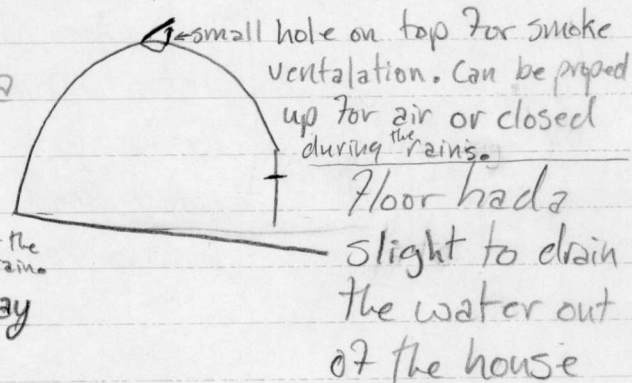 small hole on top for smoke
ventalation. Can be proped
up for air or closed
during the rains.
Floor had a
slight to drain
the water out
of the house
the
ay